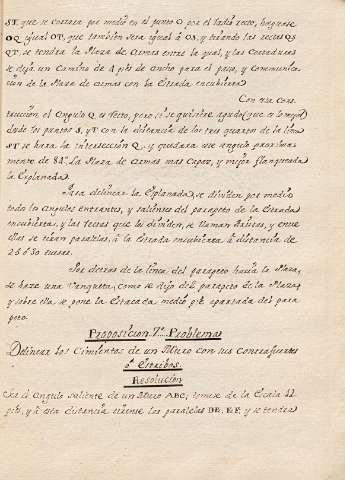 ST, que se cortara por medio en el punto O, por el lado recto, hagase
OQ igual OT, que tambien sera igual á OS, y tirando las rectas QS
QT, se tendra la Plaza de Armas entre la qual, y las Cortaduras
se deja un Camino de 4 pies de ancho para el paso, y comunica-
cion de la Plaza de armas con la Estrada encubierta
Con esta cons-
truccion el Angulo Q es recto, pero si se quisiere agudo (que es lo mejor)
desde los puntos S, y T con la distancia de los tres quartos de la linea
ST se hara la interseccion Q, y quedara ese angulo proxima-
mente de 84º. La Plaza de Armas mas Capaz, y mejor flanqueada
la Esplanada.
Para delinear la Esplanada, se dividen por medio
todo los Angulos entrantes, y salientes del parapeto de la Estrada
encubierta, y las rectas que los dividen, se llaman y entre
ellas se tiran paralelas, á la Estrada encubierta á distancia de
25 ó 30 tuesas.
Por detras de la linea del parapeto hacia la Plaza,
se hace una Vanqueta, como se dijo del parapeto de la Plaza, y
sobre ella se pone la Estacada medio pie apartada del para-
peto.
Proposicion 7ª Problema
Delinear los Cimientos de un Muro con sus Contrafuertes
ó Estribos.
Resolucion
Sea el Angulo saliente de un Muro ABC, tomese de la Escala 12
pies, y á esta distancia tirense las paralelas DE, EF y se tendra